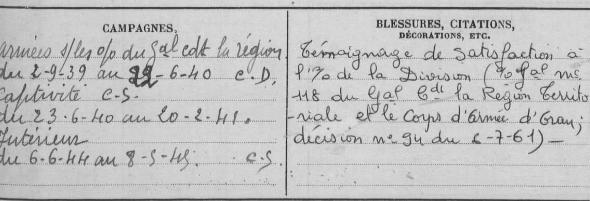 CAMPAGNES,
Armées s/les o/o du Gal cdt la région
du 2-9-39 au 22-6-40 C.D.
Captivité C-S.
du 23-6-40 au 20-2-41.
Intérieur
du 6-6-44 au 8-5-45. C.S.
BLESSURES, CITATIONS,
DÉCORATIONS, ETC.
Témoignage de Satisfaction à
l'% de la Division (% Gal no
118 du Gal Cdt la Région Territo
-riale et le Corps d'Armée d'Oran;
décision no 94 du 6-7-61) —